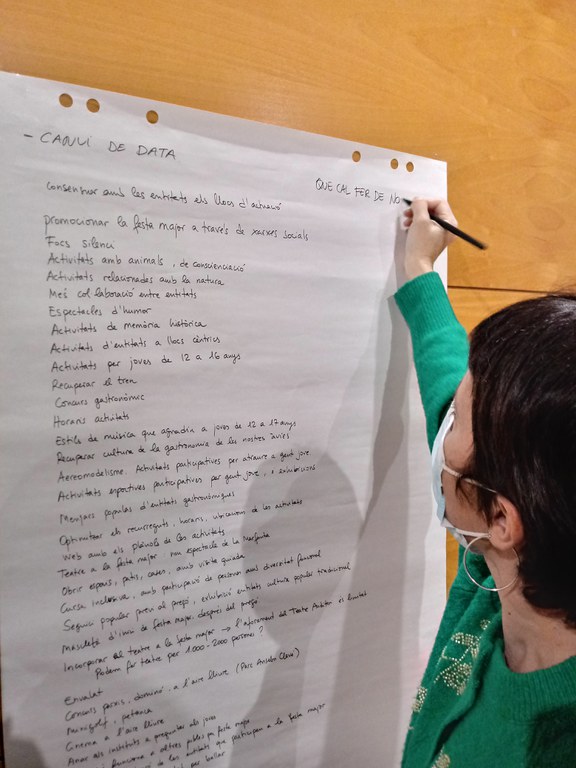 - CANVI DE DATA
QUE CAL FER DE NO
Consensuar amb les entitats els llocs d'actuació
promocionar la festa major a través de xarxes socials
Focs silenci
Activitats amb animals, de conscienciació
Activitats relacionades amb la natura
Més col·laboració entre entitats
Espectacles d'humor
Activitats de memòria històrica
Activitats d'entitats a llocs cèntrics
Activitats per joves de 12 a 16 anys
Recuperar el tren
Concurs gastronòmic
Horaris activitats
Estils de música que agradin a joves de 12 a 17 anys
Recuperar cultura de la gastronomia de les nostres àvies
Aereomodelisme. Activitats participatives per atraure a gent jove
Activitats esportives participatives per gent jove, i exhibicions
Menjars populars d'entitats gastronòmiques
Optimitzar els recorreguts, horaris, ubicacions de les activitats
Web amb els plànols de les activitats
Teatre a la festa major: nou espectacle de la
Obrir espais, patis, cases, amb visita guiada
Cursa inclusiva, amb participació de persones amb diversitat funcional
Seguici popular previ al pregó, exhibició entitats cultura popular tradicional
Mascletà d'inici de festa major després del pregó
Incorporar el teatre a la festa major → l'aforament del Teatre Auditor és limitat
Podem fer teatre per 1000-2000 persones?
Envalat
Concurs parxís, dominó, a l'aire lliure (Parc Anselm Clavé)
Minigolf, petanca
Cinema a l'aire lliure
Anar als instituts a preguntar als joves
funciona a altres pobles per festa major
de les entitats que participen a la festa major
per ballar